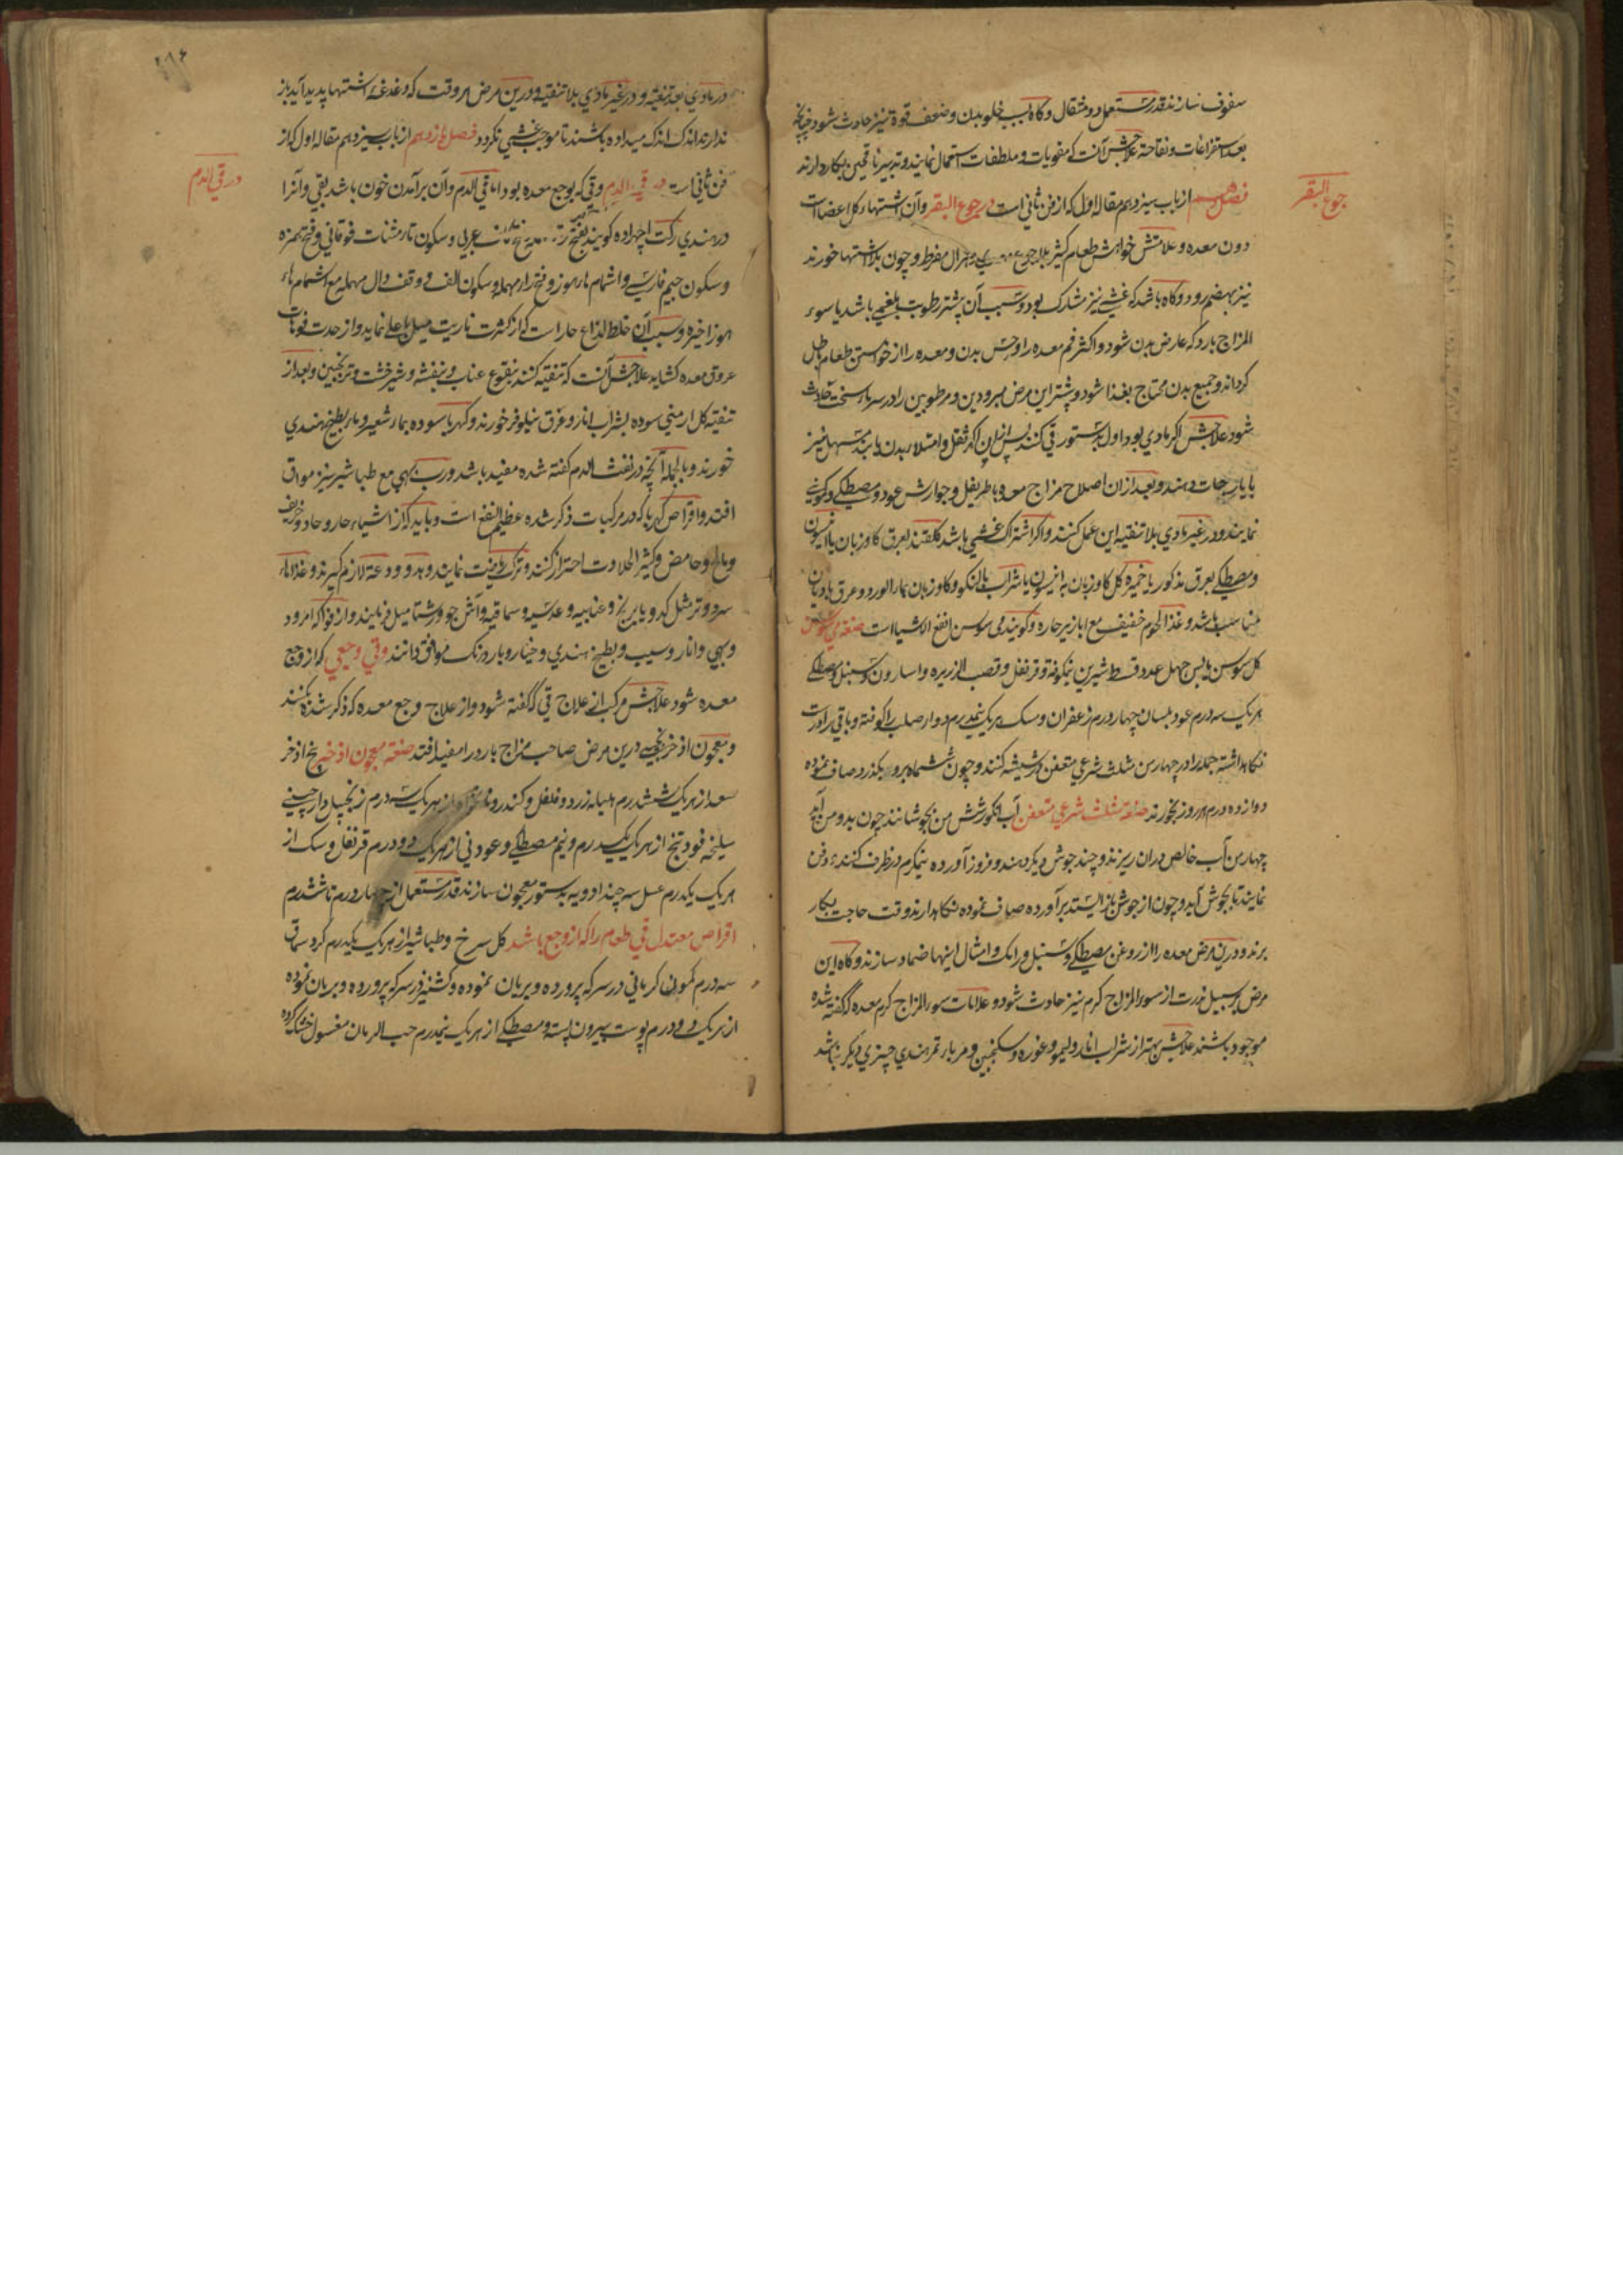 جوع البقر
سفوف سازند قدر مستعمل دو مثقال و گاه بسبب خلو بدن و ضعف قوة نیز حادث شود چنانچه
بعد استفراغات و نقاهت علاجش آنست که مقویات و ملطفات استعمال نمایند و تدبیر ناقهین بکار دارند
فصل دهم از باب سیزدهم مقاله اول که از فن ثانی است در جوع البقر و آن اشتهاء کل اعضا است
دون معده و علامتش خواهش طعام کثیر بلا جوع و هزال مفرط و چون بلا اشتها خورند
نیز بهضم رود و گاه باشد که غشی نیز مشارک بود و سبب آن بیشتر رطوبت بلغمی باشد یا سوء
المزاج بارد که عارض بدن شود و اکثر فم معده را و حس بدن و معده را از خواستن طعام باطل
گرداند و جمیع بدن محتاج بغذا شود و بیشتر این مرض مبرودین و مرطوبین را در سرماء سخت حادث
شود علاجش اگر مادی بود اول بدستور قی کنند پس ازان اگر ثقل و امتلاء بدن یابند مسهل نیز
بایارجات دهند و بعد ازان اصلاح مزاج معده باطریفل و جوارش عود و مصطکی و کمونی
نمایند و در غیر مادی بلا تنقیه این عمل کنند و اگر اشتراک غشی باشد گلقند بعرق گاوزبان یا انیسون
و مصطکی بعرق مذکور یا خمیره گل گاوزبان به انیسون یا شراب بالنکو و گاوزبان بماء الورد و عرق بادیان
مناسب باشد و غذا لحوم خفیف مع ابازیر حاره و گویند می سوسن انفع الاشیا است صنعة می سوسن
گل سوسن یابس چهل عدد قسط شیرین نیکوفته و قرنفل و قصب الزریره و اسارون و سنبل و مصطکی
هر یک سه درم عود بلسان چهار درم زعفران و سک هر یک نیمدرم دوا و صلب را کوفته و باقی را درست
نگاهداشته جمله را در چهار من مثلث شرعی متعفن در شیشه کنند و چون ششماه برو بگذرد صاف نموده
دوازده درم هر روز بخورند صنعة مثلث شرعی متعفن آب انگور شش من بجوشانند چون بدو من آید
چهار من آب خالص دران ریزند و چند جوش دیگر دهند و فرود آورده نیمگرم در ظرف کنند و دفن
نمایند تا بجوش آید و چون از جوش باز ایستد برآورده صاف نموده نگاهدارند وقت حاجت بکار
برند و درین مرض معده را از روغن مصطکی و سنبل و رامک و امثال اینها ضماد سازند و گاه این
مرض بر سبیل ندرت از سوء المزاج گرم نیز حادث شود و علامات سوء المزاج گرم معده که گفته شده
موجود باشند علاجش بهتر از شراب انار و لیمو و غوره و سکنجبین و مربا و تمر هندی چیزی دیگر نباشد
در قی الدم
در مادی بعد تنقیه و در غیر مادی بلا تنقیه و درین مرض هر وقت که دغدغه اشتها پدید آید باز
ندارند اندک اندک میداده باشند تا موجب غشی نگردد فصل یازدهم از باب سیزدهم مقاله اول که از
فن ثانی است در قی الدم و قی که بوجع معده بود اما قی الدم و آن برآمدن خون باشد بقی و آنرا
در هندی رکت اچهراده گویند بفتح عربی و سکون تاء مثنات فوقانی و فتح همزه
و سکون جیم فارسی و اشمام هاء هوز و فتح راء مهمله و سکون الف و وقف دال مهمله مع اشمام هاء
هوز اخیره و سبب آن خلط لذاع حار است که از کثرت ناریت میل باعلی نماید و از حدت فوهات
عروق معده کشاید علاجش آنست که تنقیه کنند بنقوع عناب و بنفشه و شیرخشت و ترنجبین و بعد از
تنقیه گل ارمنی سوده بشراب انار و عرق نیلوفر خورند و کهربا سوده بماء شعیر و ماء بطیخ هندی
خورند و بالجمله آنچه در نفث الدم گفته شده مفید باشد و رب بهی مع طباشیر نیز موافق
افتد و اقراص کهربا که در مرکبات ذکر شده عظیم النفع است و باید که از اشیاء حار و حاد و حریف
و مالح و حامض و کثیر الحلاوت احتراز کنند و ترک ریاضت نمایند و هدو و دعة لازم گیرند و غذاها
سرد و تر مثل کدو یا برنج و عنابیه و عدسیه و سماقیه و آش جو و رشتا میل فرمایند و از فواکه امرود
و بهی و انار و سیب و بطیخ هندی و خیار و بادرنگ موافق دانند و قی وجعی که از وجع
معده شود علاجش مرکب از علاج قی که گفته شود و از علاج وجع معده که ذکر شده بکنند
و معجون اذخر بخیسے درین مرض صاحب مزاج بارد را مفید افتد صنعة معجون اذخر بیخ اذخر
سعد از هر یک ششدرم هلیله زرد و فلفل و کندر از هر یک سه درم زنجبیل دارچینی
سلیخه فودنج از هر یک یکدرم و نیم مصطکی و عود نی از هر یک دو درم قرنفل و سک از
هر یک یکدرم عسل سه چند ادویه بدستور معجون سازند قدر مستعمل از چهار درم تا ششدرم
اقراص معتدل قی طعام را که از وجع باشد گل سرخ و طباشیر از هر یک یکدرم گرد سماق
سه درم کمون کرمانی در سرکه پرورده و بریان نموده و کشنیز در سرکه پرورده و بریان نموده
از هر یک دو درم پوست بیرون پسته و مصطکی از هر یک نیمدرم حب الرمان مغسول خشک کرده